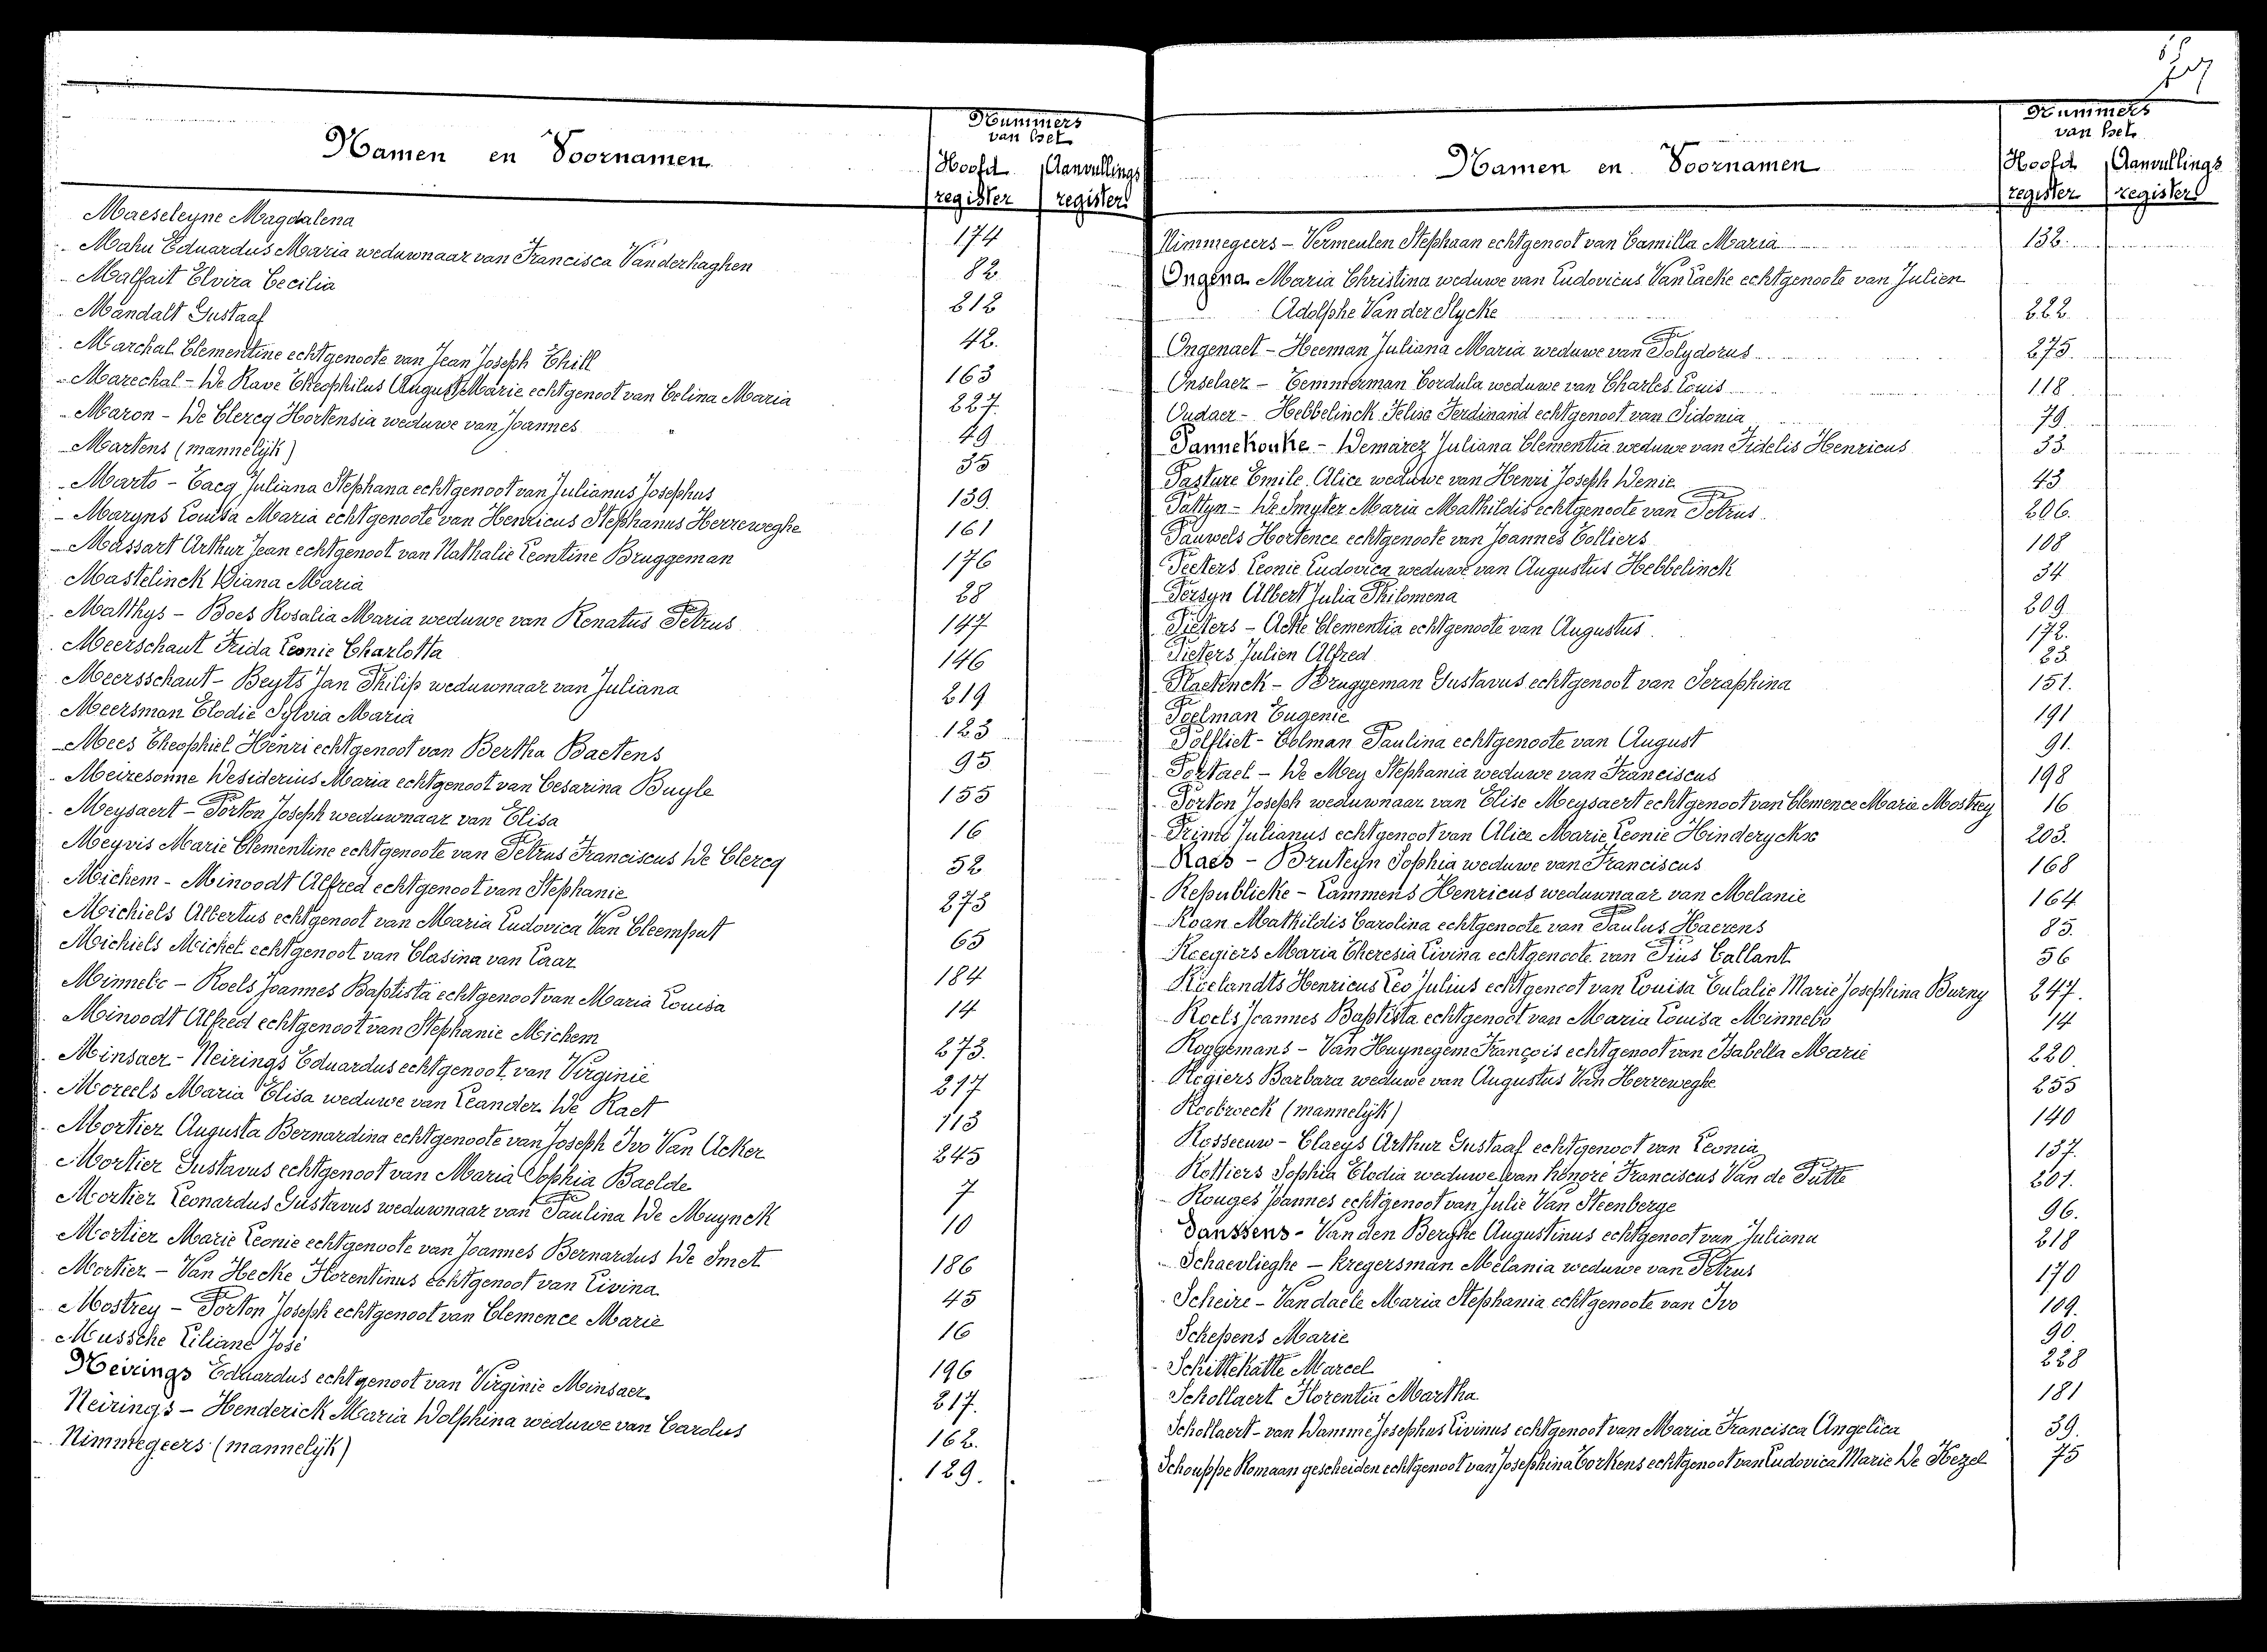 Namen en Voornamen
Nummers
van het
Hoofd Aanvullings
register register
Maeseleyne Magdalena 174
Mahu Eduardus Maria weduwnaar van Francisca Vanderhaghen 82
Malfait Elvira Cecilia 212
Mandalt Gustaaf 42.
Marchal Clementine echtgenoote van Jean Joseph Thill 163
Marechal - De Rave Theophilus August Marie echtgenoot van Celina Maria 227.
Maron - De Clercq Hortensia weduwe van Joannes 49
Martens (mannelijk) 35
Marto - Tacq Juliana Stephana echtgenoot van Julianus Josephus 139.
Maryns Louisa Maria echtgenoote van Henricus Stephanus Herreweghe 161
Massart Arthur Jean echtgenoot van Nathalie Leontine Bruggeman 176
Mastelinck Diana Maria 28
Matthys - Boes Rosalia Maria weduwe van Renatus Petrus 147
Meerschaut Frida Leonie Charlotta 146
Meersschaut - Beyts Jan Philip weduwnaar van Juliana 219
Meersman Elodie Sylvia Maria 123
Mees Theophiel Henri echtgenoot van Bertha Baetens 95
Meiresonne Desiderius Maria echtgenoot van Cesarina Buyle 155
Meysaert - Porton Joseph weduwnaar van Elisa 16
Meyvis Marie Clementine echtgenoote van Petrus Franciscus De Clercq 52
Michem - Minoodt Alfred echtgenoot van Stephanie 273
Michiels Albertus echtgenoot van Maria Ludovica Van Cleemput 65
Michiels Michel echtgenoot van Clasina van Laar 184
Minnebo - Roels Joannes Baptista echtgenoot van Maria Louisa 14
Minoodt Alfred echtgenoot van Stephanie Michem 273.
Minsaer - Neirings Eduardus echtgenoot van Virginie 217
Moreels Maria Elisa weduwe van Leander De Raet 113
Mortier Augusta Bernardina echtgenoote van Joseph Ivo Van Acker 245
Mortier Gustavus echtgenoot van Maria Sophia Baelde 7
Mortier Leonardus Gustavus weduwnaar van Paulina De Muynck 10
Mortier Marie Leonie echtgenoote van Joannes Bernardus De Smet 186
Mortier - Van Hecke Florentinus echtgenoot van Livina 45
Mostrey - Porton Joseph echtgenoot van Clemence Marie 16
Mussche Liliane José 196
Neirings Eduardus echtgenoot van Virginie Minsaer 217.
Neirings - Henderick Maria Dolphina weduwe van Carolus 162.
Nimmegeers (mannelijk) 129.
Namen en Voornamen
Nummers
van het
Hoofd Aanvullings
register register
Nimmegeers - Vermeulen Stephaan echtgenoot van Camilla Maria 132.
Ongena Maria Christina weduwe van Ludovicus Van Lacke echtgenoote van Julien
Adolphe Van der Slycke 222.
Ongenaet - Heeman Juliana Maria weduwe van Polydorus 275.
Onselaer - Temmerman Cordula weduwe van Charles Louis 118
Oudaer - Hebbelinck Felise Ferdinand echtgenoot van Sidonia 79.
Pannekouke - Demarez Juliana Clementia weduwe van Fidelis Henricus 33.
Pasture Emile Alice weduwe van Henri Joseph Denie 43
Pattyn - De Smyter Maria Mathildis echtgenoote van Petrus 206.
Pauwels Hortence echtgenoote van Joannes Colliers 108
Peeters Leonie Ludovica weduwe van Augustus Hebbelinck 34
Persyn Albert Julia Philomena 209
Pieters - Acke Clementia echtgenoote van Augustus 172.
Pieters Julien Alfred 23.
Plaetinck - Bruggeman Gustavus echtgenoot van Seraphina 151.
Poelman Eugenie 191
Polfliet - Colman Paulina echtgenoote van August 91.
Portael - De Mey Stephania weduwe van Franciscus 198
Porton Joseph weduwnaar van Elise Meysaert echtgenoot van Clemence Marie Mostrey 16
Primo Julianus echtgenoot van Alice Marie Leonie Hinderyckx 203.
Raes - Bruteyn Sophia weduwe van Franciscus 168
Republicke - Lammens Henricus weduwnaar van Melanie 164
Roan Mathildis Carolina echtgenoote van Paulus Haerens 85.
Roegiers Maria Theresia Livina echtgenoote van Pius Callant 56
Roelandts Henricus Leo Julius echtgenoot van Louisa Eulalie Marie Josephina Burny 247.
Roels Joannes Baptista echtgenoot van Maria Louisa Minnebo 14
Roggemans - Van Huynegem François echtgenoot van Isabella Marie 220.
Rogiers Barbara weduwe van Augustus Van Herreweghe 255
Roobroeck (mannelijk) 140
Rosseeuw - Claeys Arthur Gustaaf echtgenoot van Leonia 137.
Rottiers Sophia Elodia weduwe van honoré Franciscus Van de Putte 201.
Rouges Joannes echtgenoot van Julie Van Steenberge 96.
Sanssens - Van den Berghe Augustinus echtgenoot van Juliana 218
Schaevlieghe - Kregersman Melania weduwe van Petrus 170
Scheire - Vandaele Maria Stephania echtgenoote van Ivo 109.
Schepens Marie 90.
Schittekatte Marcel 228
Schollaert Florentia Martha 181
Schollaert - van Damme Josephus Livinus echtgenoot van Maria Francisca Angelica 39.
Schouppe Romaan gescheiden echtgenoot van Josephina Corkens echtgenoot van Ludovica Marie De Kezel 75